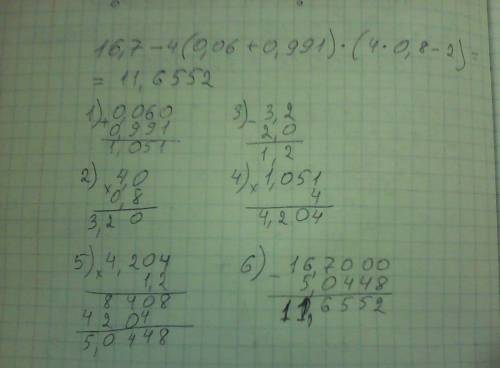 16,7-4(0,06+0,991)·(4·0,8-2)=
= 11,6552
1) + 0,060
0,991
1,051
2) × 4,0
0,8
3,20
3) - 3,2
2,0
1,2
4) × 1,051
4
4,204
5) × 4,204
1,2
8408
4204
5,0448
6) - 16,7000
5,0448
11,6552